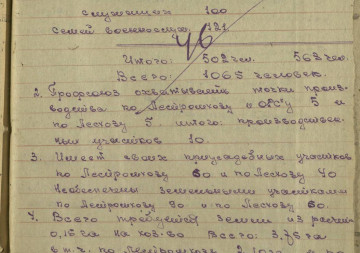 служащих 100
Семей военнослуж. 121
46
Итого: 502 чел. 563 чел.
Всего: 1065 человек.
2. Профсоюз охватывает точки произ-
водства по Леспромхозу и ОРС'у 5 и
по Лесхозу 5 итого: производствен-
ных участков 10.
3. Имеет своих приусадебных участков
по Леспромхозу 60 и по Лесхозу 40
Необеспечены земельными участками
по Леспромхозу 90 и по Лесхозу 60.
4. Всего требуется земли из расчета
0,15 га на хоз-во. Всего: 3,76 га
в т.ч. по Леспромхозу 2,10 га и по